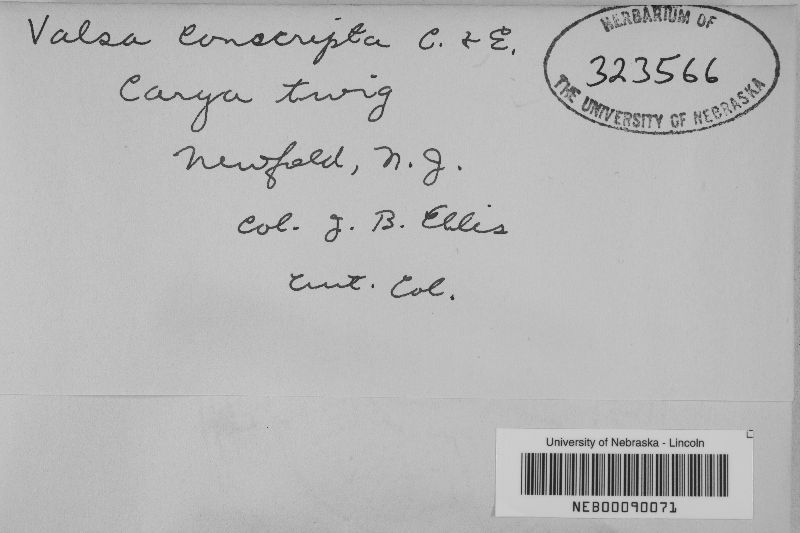 Valsa conscripta C. & E.
HERBARIUM OF
323566
THE UNIVERSITY OF NEBRASKA
Carya twig
Newfield, N. J.
Col. J. B. Ellis
Col.
University of Nebraska - Lincoln
NEB00090071